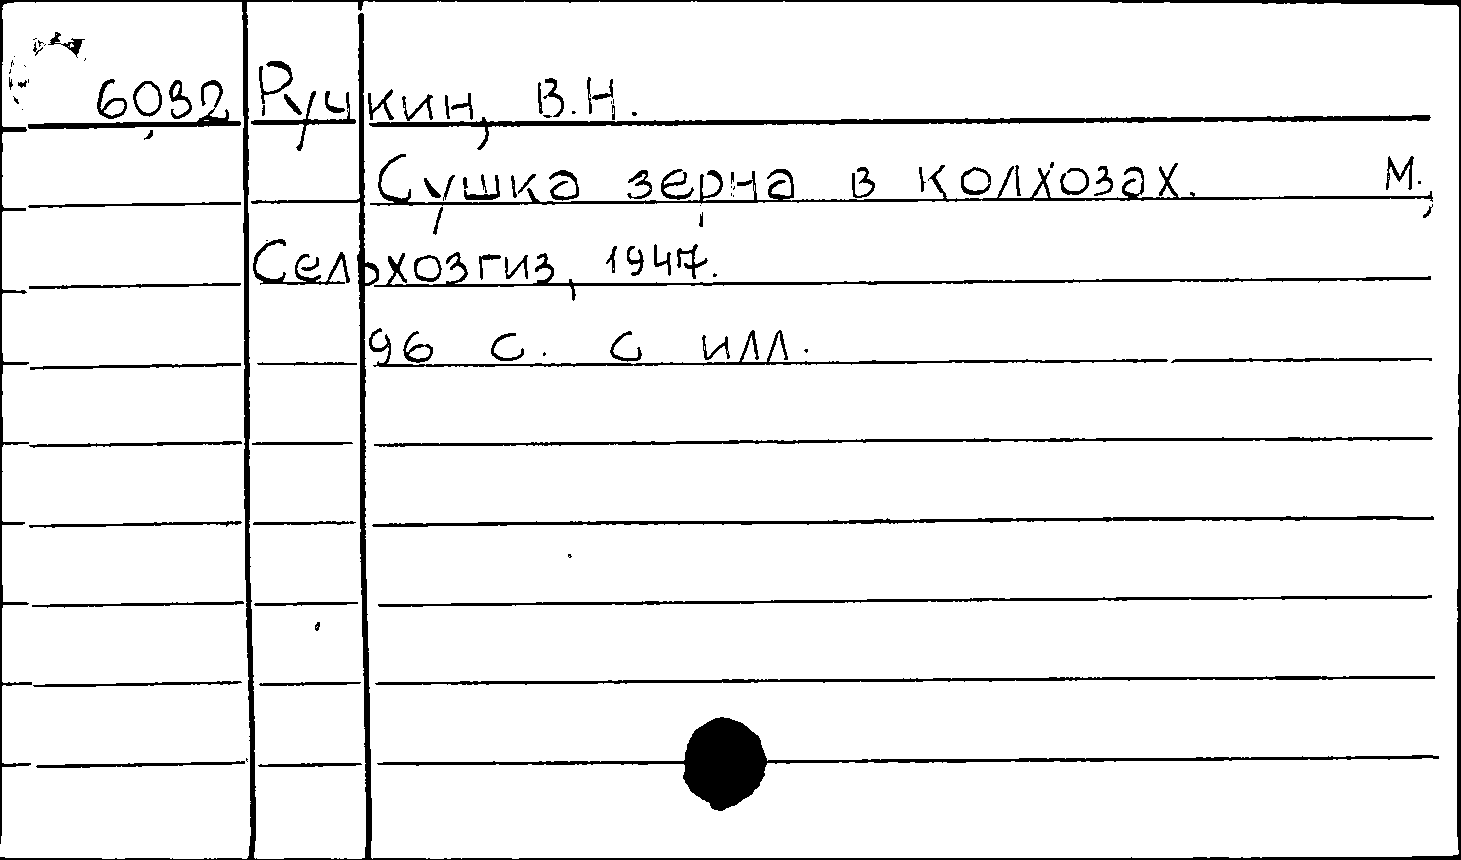 6032 Ручкин, В.Н.
Сушка зерна в колхозах. М.,
Сельхозгиз, 1947.
96 с. с илл.